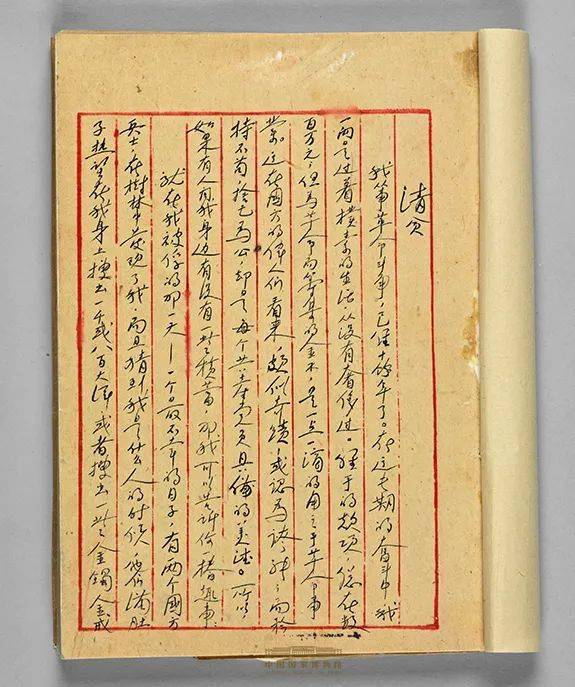 清贫
我從事革命斗争，已經十餘年了。在这長期的奮斗中，我
一向是过着樸素的生活，从没有奢侈过。經手的款項，總在数
百万元；但为革命而籌集的金錢，是一点一滴的用之于革命事
業。这在國方的偉人们看來，頗似奇蹟，或認为誇張；而矜
持不苟，捨己为公，却是每个共產党員具備的美德。所以，
如果有人问我身边有没有一些積蓄，那我可以告訴你一樁趣事：
就在我被俘的那一天——一个最不幸的日子，有两个國方
兵士，在樹林中发现了我，而且猜到我是什么人的时候，他们滿肚
子热望在我身上搜出一千或八百大洋，或者搜出一些金鐲金戒
中国国家博物馆